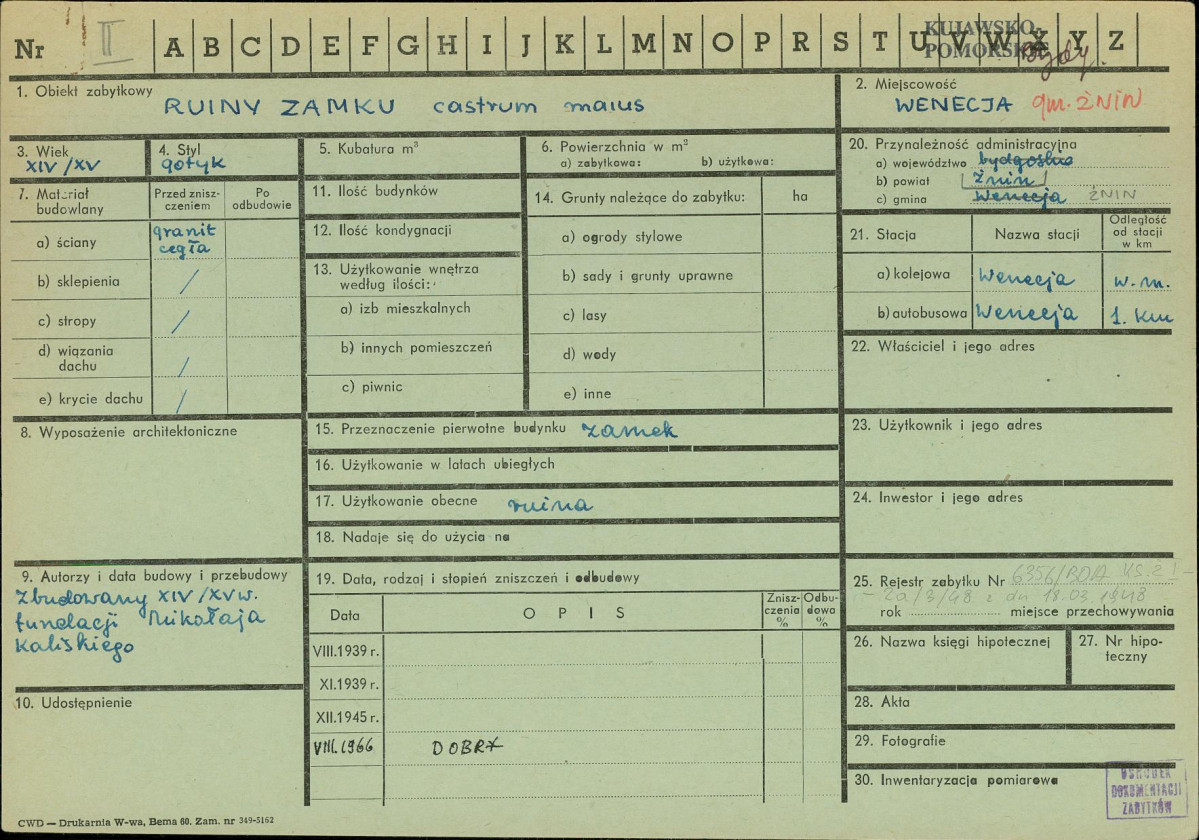 Nr II A B C D E F G H I J K L M N O P R S T U V W X Y Z
KUJAWSKO-
POMORSKIE
Bydg.
1. Obiekt zabytkowy
RUINY ZAMKU castrum maius
2. Miejscowość
WENECJA gm. ŻNIN
3. Wiek
XIV/XV
4. Styl
gotyk
5. Kubatura m³
6. Powierzchnia w m²
a) zabytkowa: b) użytkowa:
20. Przynależność administracyjna
a) województwo bydgoskie
b) powiat Żnin
c) gmina Wenecja ŻNIN
7. Materiał
budowlany
Przed znisz-
czeniem
Po
odbudowie
a) ściany granit
cegła
b) sklepienia /
c) stropy /
d) wiązania
dachu /
e) krycie dachu /
11. Ilość budynków
12. Ilość kondygnacji
13. Użytkowanie wnętrza
według ilości:
a) izb mieszkalnych
b) innych pomieszczeń
c) piwnic
14. Grunty należące do zabytku: ha
a) ogrody stylowe
b) sady i grunty uprawne
c) lasy
d) wody
e) inne
21. Stacja Nazwa stacji Odległość
od stacji
w km
a) kolejowa Wenecja w.m.
b) autobusowa Wenecja 1. km
22. Właściciel i jego adres
8. Wyposażenie architektoniczne
15. Przeznaczenie pierwotne budynku zamek
16. Użytkowanie w latach ubiegłych
17. Użytkowanie obecne ruina
18. Nadaje się do użycia na
23. Użytkownik i jego adres
24. Inwestor i jego adres
9. Autorzy i data budowy i przebudowy
Zbudowany XIV/XV w.
fundacji Mikołaja
Kaliskiego
10. Udostępnienie
19. Data, rodzaj i stopień zniszczeń i odbudowy
Data OPIS Znisz-
czenia
%
Odbu-
dowa
%
VIII.1939 r.
XI.1939 r.
XII.1945 r.
VIII.1966 DOBRY
25. Rejestr zabytku Nr 6356/BDA
2a/3/48 z dn 18.03.1948
rok miejsce przechowywania
26. Nazwa księgi hipotecznej
27. Nr hipo-
teczny
28. Akta
29. Fotografie
30. Inwentaryzacja pomiarowa
OŚRODEK
DOKUMENTACJI
ZABYTKÓW
CWD — Drukarnia W-wa, Bema 60. Zam. nr 349-5162